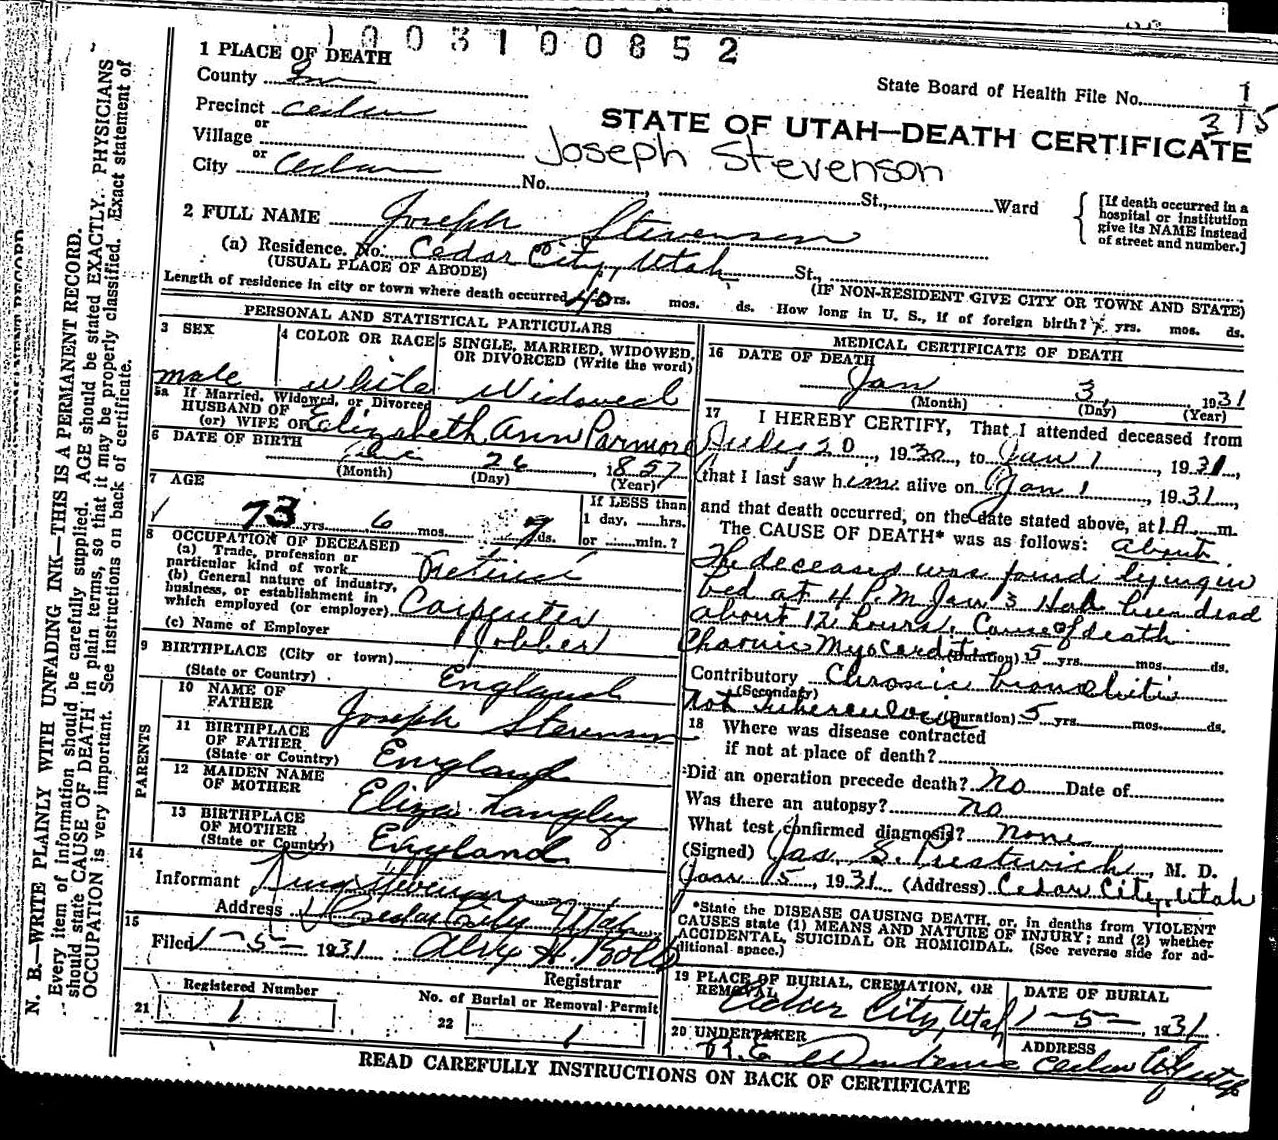 1003100852
1 PLACE OF DEATH
County
State Board of Health File No. 1
315
Precinct Cedar
STATE OF UTAH—DEATH CERTIFICATE
or
Village
Joseph Stevenson
or
City Cedar No. St., Ward
[If death occurred in a
hospital or institution
give its NAME instead
of street and number.]
2 FULL NAME Joseph Stevenson
(a) Residence. No. Cedar City, Utah St.,
(USUAL PLACE OF ABODE) (IF NON-RESIDENT GIVE CITY OR TOWN AND STATE)
Length of residence in city or town where death occurred 40 yrs. mos. ds. How long in U. S., if of foreign birth? yrs. mos. ds.
PERSONAL AND STATISTICAL PARTICULARS
3 SEX
male
4 COLOR OR RACE
white
5 SINGLE, MARRIED, WIDOWED,
OR DIVORCED (Write the word)
Widowed
5a If Married, Widowed, or Divorced
HUSBAND OF
(or) WIFE OF Elizabeth Ann Parmore
6 DATE OF BIRTH
26, 1857
(Month) (Day) (Year)
7 AGE
73 yrs. 6 mos. 7 ds.
If LESS than
1 day, hrs.
or min.?
8 OCCUPATION OF DECEASED
(a) Trade, profession or
particular kind of work Retired
(b) General nature of industry,
business, or establishment in
which employed (or employer) Carpenter
(c) Name of Employer Jobber
9 BIRTHPLACE (City or town)
(State or Country) England
PARENTS
10 NAME OF
FATHER Joseph Stevenson
11 BIRTHPLACE
OF FATHER
(State or Country) England
12 MAIDEN NAME
OF MOTHER Eliza Langley
13 BIRTHPLACE
OF MOTHER
(State or Country) England
14
Informant Stevenson
Address Cedar City Utah
15
Filed 1-5- 1931
Registrar
21 Registered Number
1
22 No. of Burial or Removal Permit
1
MEDICAL CERTIFICATE OF DEATH
16 DATE OF DEATH
Jan 3, 1931
(Month) (Day) (Year)
17 I HEREBY CERTIFY, That I attended deceased from
July 20, 1930, to Jan 1, 1931,
(that I last saw him alive on Jan 1, 1931,
and that death occurred, on the date stated above, at 1 A m.
The CAUSE OF DEATH* was as follows: About
The deceased was found lying in
bed at 4 P.M Jan 3 Had been dead
about 12 hours. Cause of death
Chronic Myocarditis (Duration) 5 yrs. mos. ds.
Contributory Chronic bronchitis
(Secondary)
Not Tuberculous (Duration) 5 yrs. mos. ds.
18 Where was disease contracted
if not at place of death?
Did an operation precede death? no Date of
Was there an autopsy? no
What test confirmed diagnosis? none
(Signed) Jas. S. Prestwich, M. D.
Jan 5, 1931 (Address) Cedar City, Utah
*State the DISEASE CAUSING DEATH, or, in deaths from VIOLENT
CAUSES state (1) MEANS AND NATURE OF INJURY; and (2) whether
ACCIDENTAL, SUICIDAL OR HOMICIDAL. (See reverse side for ad-
ditional space.)
19 PLACE OF BURIAL, CREMATION, OR
REMOVAL Cedar City, Utah
DATE OF BURIAL
1-5- 1931
20 UNDERTAKER
ADDRESS
Cedar City Utah
READ CAREFULLY INSTRUCTIONS ON BACK OF CERTIFICATE
N. B.—WRITE PLAINLY WITH UNFADING INK—THIS IS A PERMANENT RECORD.
Every item of information should be carefully supplied. AGE should be stated EXACTLY. PHYSICIANS
should state CAUSE OF DEATH in plain terms, so that it may be properly classified. Exact statement of
OCCUPATION is very important. See instructions on back of certificate.